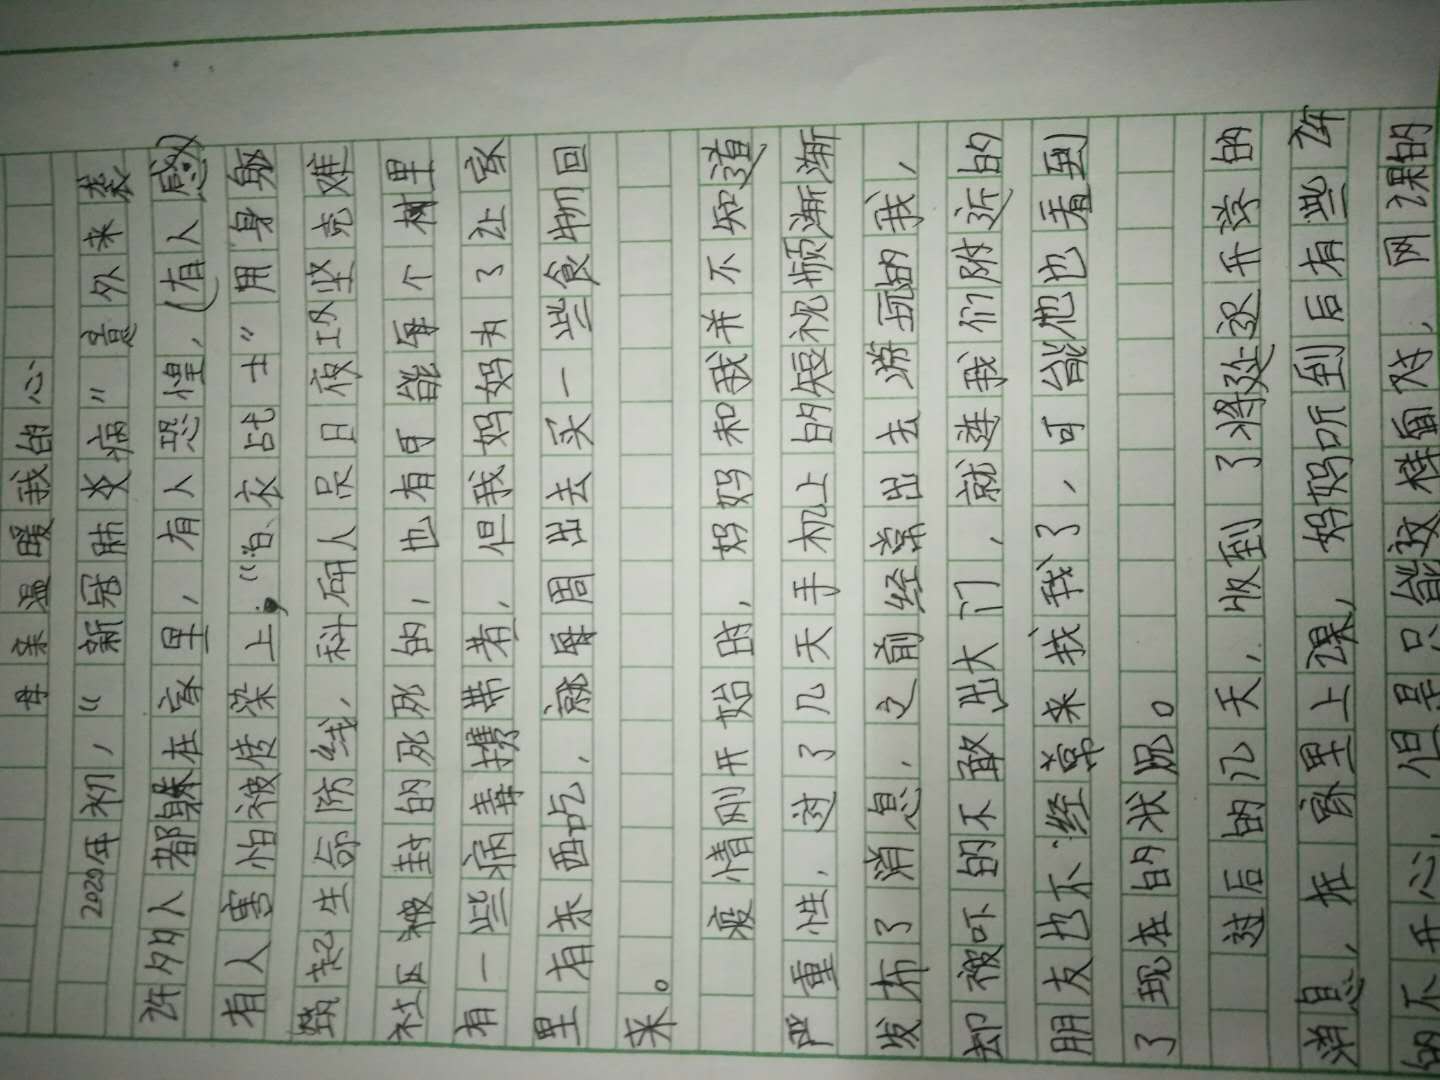 母亲温暖我的心
2020年初，“新冠肺炎病”意外来袭
许多人都躲在家里，有人恐惶，（有人感）
有人害怕被传染上，“白衣战士”用身躯
筑起生命防线，科研人员日夜攻坚克难
社区被封的死死的，也有可能每个树里
有一些病毒携带者，但我妈妈为了让家
里有东西吃，就每周出去买一些食物回
来。
疫情刚开始时，妈妈和我并不知道
严重性，过了几天手机上的短视频渐渐
发布了消息，之前经常出去游玩的我，
却被吓的不敢出大门，就连我们附近的
朋友也不经常来找我了，可能他也看到
了现在的状况。
过后的几天，收到了将延迟开学的
消息，在家里上课，妈妈听到后有些许
的不开心，但是只能这样面对，网课的